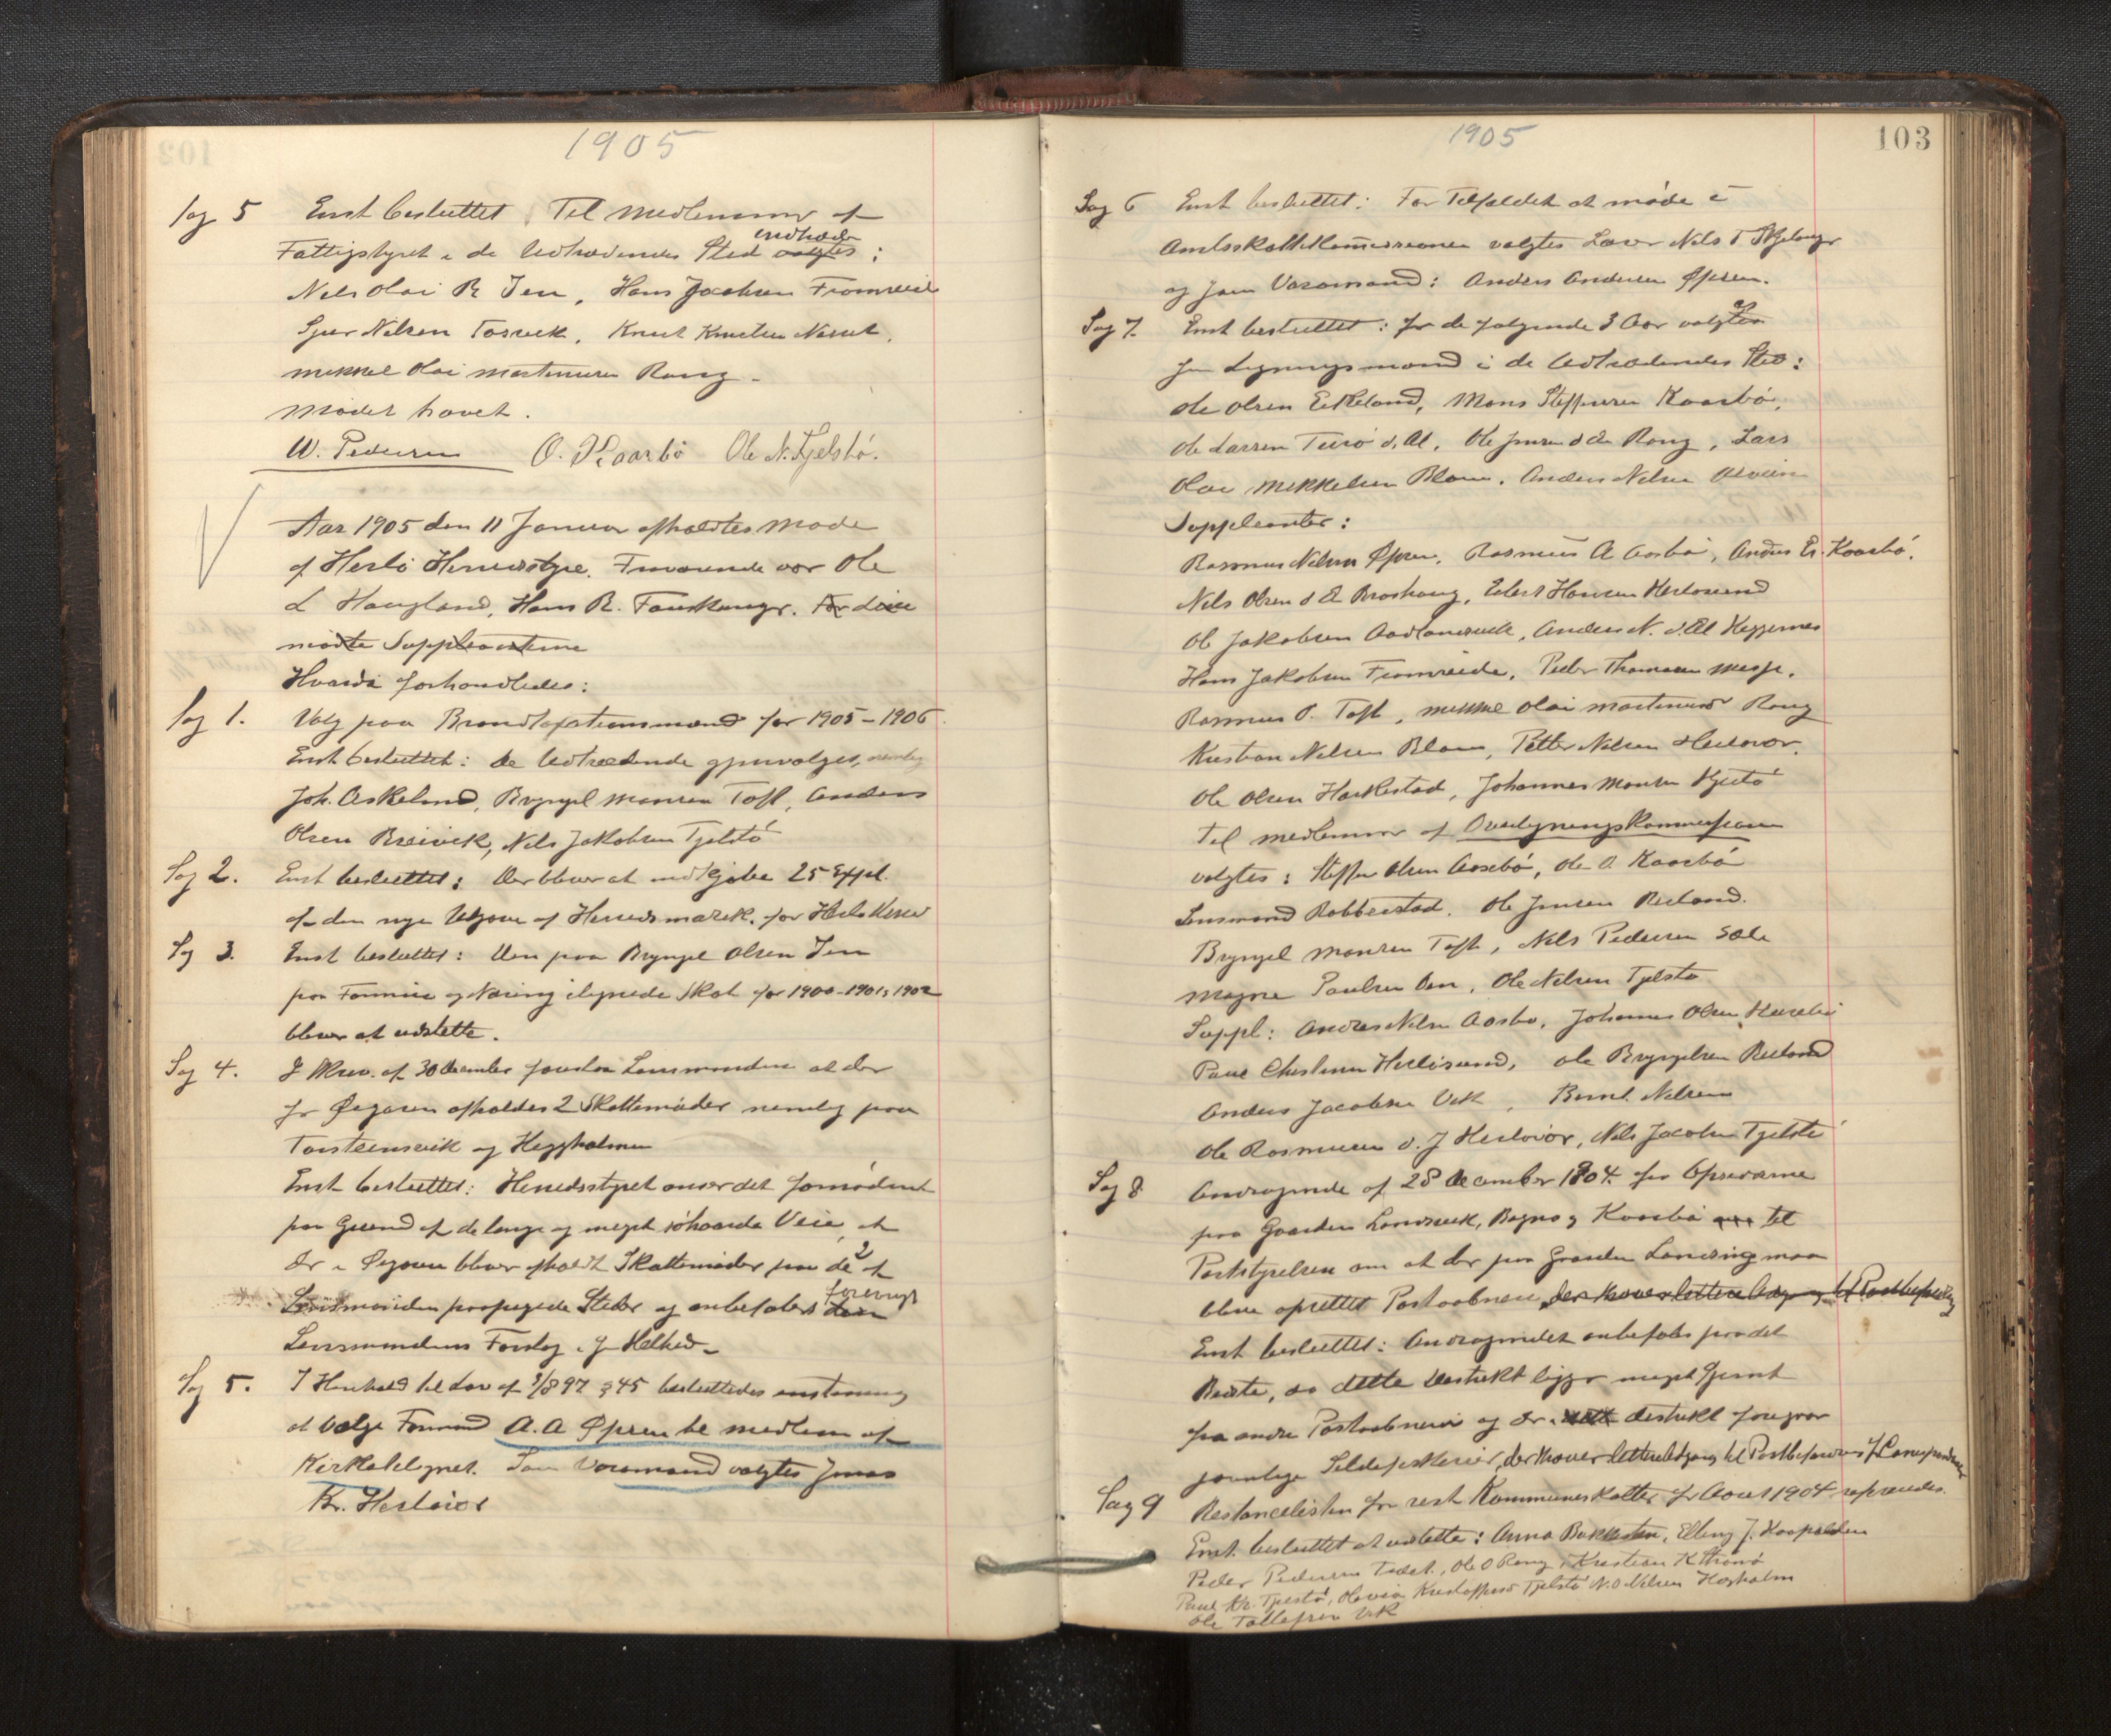 1905
Sag 5 Enst besluttet, Til Medlemmer af
indtræder
Fattigstyret i de Udtrædendes Sted valgtes:
Nels Olai R Ten, Hans Jacobsen Fromreide
Sjur Nelsen Tosvik, Knut Knudsen Nesset,
Mikkel Olai Martinusen Rong.
Mødet hævet.
W. Pedersen O. Kaarbø Ole N. Tjelstø.
Aar 1905 den 11 Januar afholdtes Møde
af Herlø Herredsstyre. Fraværende var Ole
L Haugland, Hans R. Fauskanger. For disse
mødte Suppleanterne
Hvorda forhandledes:
Sag 1. Valg paa Brandtaxtionsmænd for 1905-1906.
Enst besluttet: de Udtrædende gjenvalges, nemlig
Joh. Askeland, Brynjel Monsen Toft, Anders
Olsen Breivik, Nils Jakobsen Tjelstø
Sag 2. Enst besluttet: Der bliver at indkjøbe 25 Expl.
af den nye Udgave af Herredsmatrik. for Herlø Herred
Sag 3. Enst besluttet: Den paa Brynjel Olsen Ten
paa Formue og Næring ilignede Skat for 1900-1901, 1902
bliver at udslette.
Sag 4. I Skriv. af 30 December foreslaar Lensmanden at der
for Øygaren afholdes 2 Skattemøder nemlig paa
Torsteinsvik og Heggholmen
Enst besluttet: Herredsstyret anser det fornødent
paa Grund af de lange og meget søhaarde Veie, at
der i Øygaren bliver afholdt Skattemøder paa de 2 af
Lensmanden paapegede Steder og anbefales
Lensmandens Forslag i sin Helhed.
Sag 5. I Henhold til Lov af 3/8 97 § 45 besluttedes enstemmig
at vælge Formand A. A Øpsen til Medlem af
Kirketilsynet. Som Varamand valgtes Jonas
Kr. Herløvær
1905
103
Sag 6 Enst besluttet: For Tilfældet at møde i
Amtsskattekommissionen valgtes Lærer Nils T Skjelanger
og som Varamand: Anders Andersen Øpsen.
Sag 7. Enst besluttet: for de følgende 3 Aar valgtes
som Ligningsmænd i de Udtrædendes Sted:
Ole Olsen Eikeland, Mons Steffensen Kaarbø,
Ole Larsen Turø d. Æl, Ole Jonsen d Æ Rong, Lars
Olai Mikkelsen Blom, Anders Nelsen Alvein
Suppleanter:
Rasmus Nelsen Øpsen, Rasmus A Aasbø, Anders Er. Kaarbø,
Nils Olsen d Æ Brashaug, Edert Hansen Herløsund
Ole Jakobsen Aadlandsvik, Anders N. d. Æl Heggernes
Hans Jakobsen Fromreide, Peder Thomasen Misje,
Rasmus P. Toft, Mikkel Olai Martinusen Rong
Kristian Nelsen Blom, Petter Nelsen Herløvær,
Ole Olsen Hatlestad, Johannes Monsen Tjeldstø
Til Medlemmer af Overligningskommissionen
valgtes: Steffen Olsen Aasebø, Ole O. Kaarbø
Lensmand Rabberstad. Ole Jonsen Risland.
Brynjel Monsen Toft, Nils Pedersen Sæle
Magne Paulsen Oen, Ole Nelsen Tjelstø
Suppl: Anders Nelsen Aasbø, Johannes Olsen
Paul Christensen Hellisund, Ole Brynjelsen Risland
Anders Jacobsen Vik, Bernt Nelsen
Ole Rasmussen d. y Herløvær, Nils Jacobsen Tjelstø
Sag 8 Andragende af 28 December 1904 fra Opsidderne
paa Gaarden Landsvik, Bognø og Kaarbø til
Poststyrelsen om at der paa Gaarden Landsvig maa
blive oprettet Postaabneri, der kræver lettere Adgang til Postbefordring
Enst besluttet: Andragendet anbefales paa det
Bedste, da dette Distrikt ligger meget fjernt
fra andre Postaabnerier og der i dette distrikt foregaar
jevnlige Sildefiskerier, der kræver lettere Adgang til Postbefordring af Correspondance
Sag 9 Restancelisten for rest Kommuneskatter for Aaret 1904 oplæstes.
Enst. besluttet at udslette: Anna Bakkesten, Elling J. Haapolden
Peder Pedersen Træet, Ole O Rong, Kristian K Strømø
Paul Kr. Tjelstø, Olevia Kristoffersd Tjelstø N. O Nelsen Hogholm
Ole Tollefsen Vik